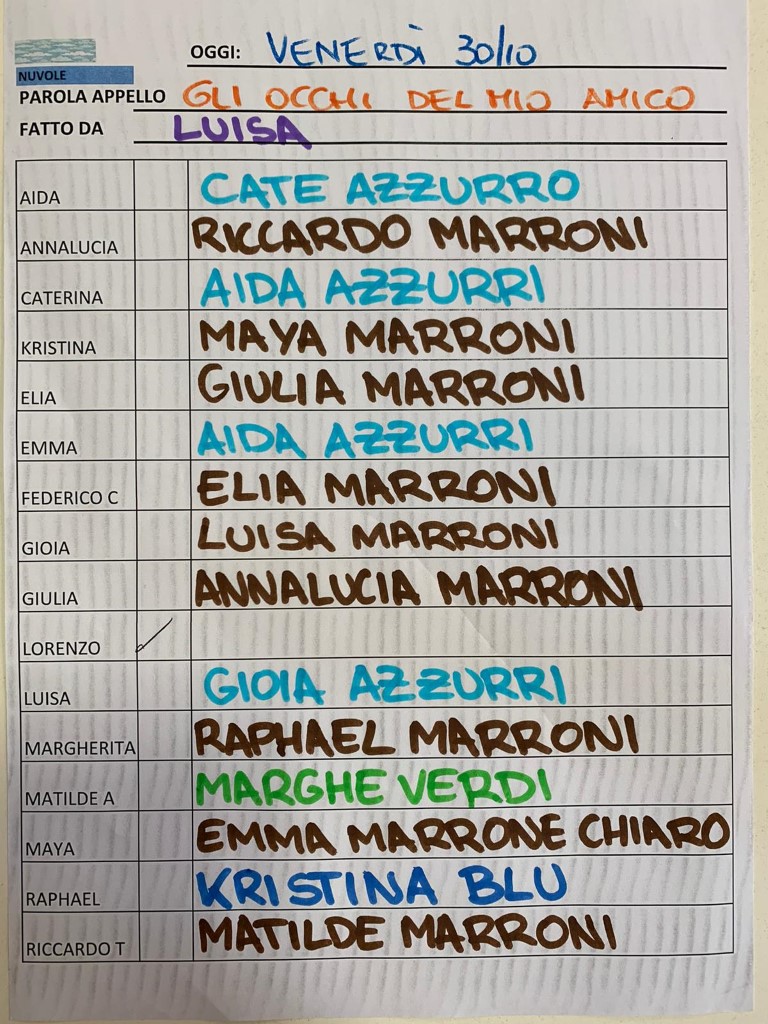 OGGI: VENERDÌ 30/10
NUVOLE
PAROLA APPELLO GLI OCCHI DEL MIO AMICO
FATTO DA LUISA
AIDA CATE AZZURRO
ANNALUCIA RICCARDO MARRONI
CATERINA AIDA AZZURRI
KRISTINA MAYA MARRONI
ELIA GIULIA MARRONI
EMMA AIDA AZZURRI
FEDERICO C ELIA MARRONI
GIOIA LUISA MARRONI
GIULIA ANNALUCIA MARRONI
LORENZO
LUISA GIOIA AZZURRI
MARGHERITA RAPHAEL MARRONI
MATILDE A MARGHE VERDI
MAYA EMMA MARRONE CHIARO
RAPHAEL KRISTINA BLU
RICCARDO T MATILDE MARRONI